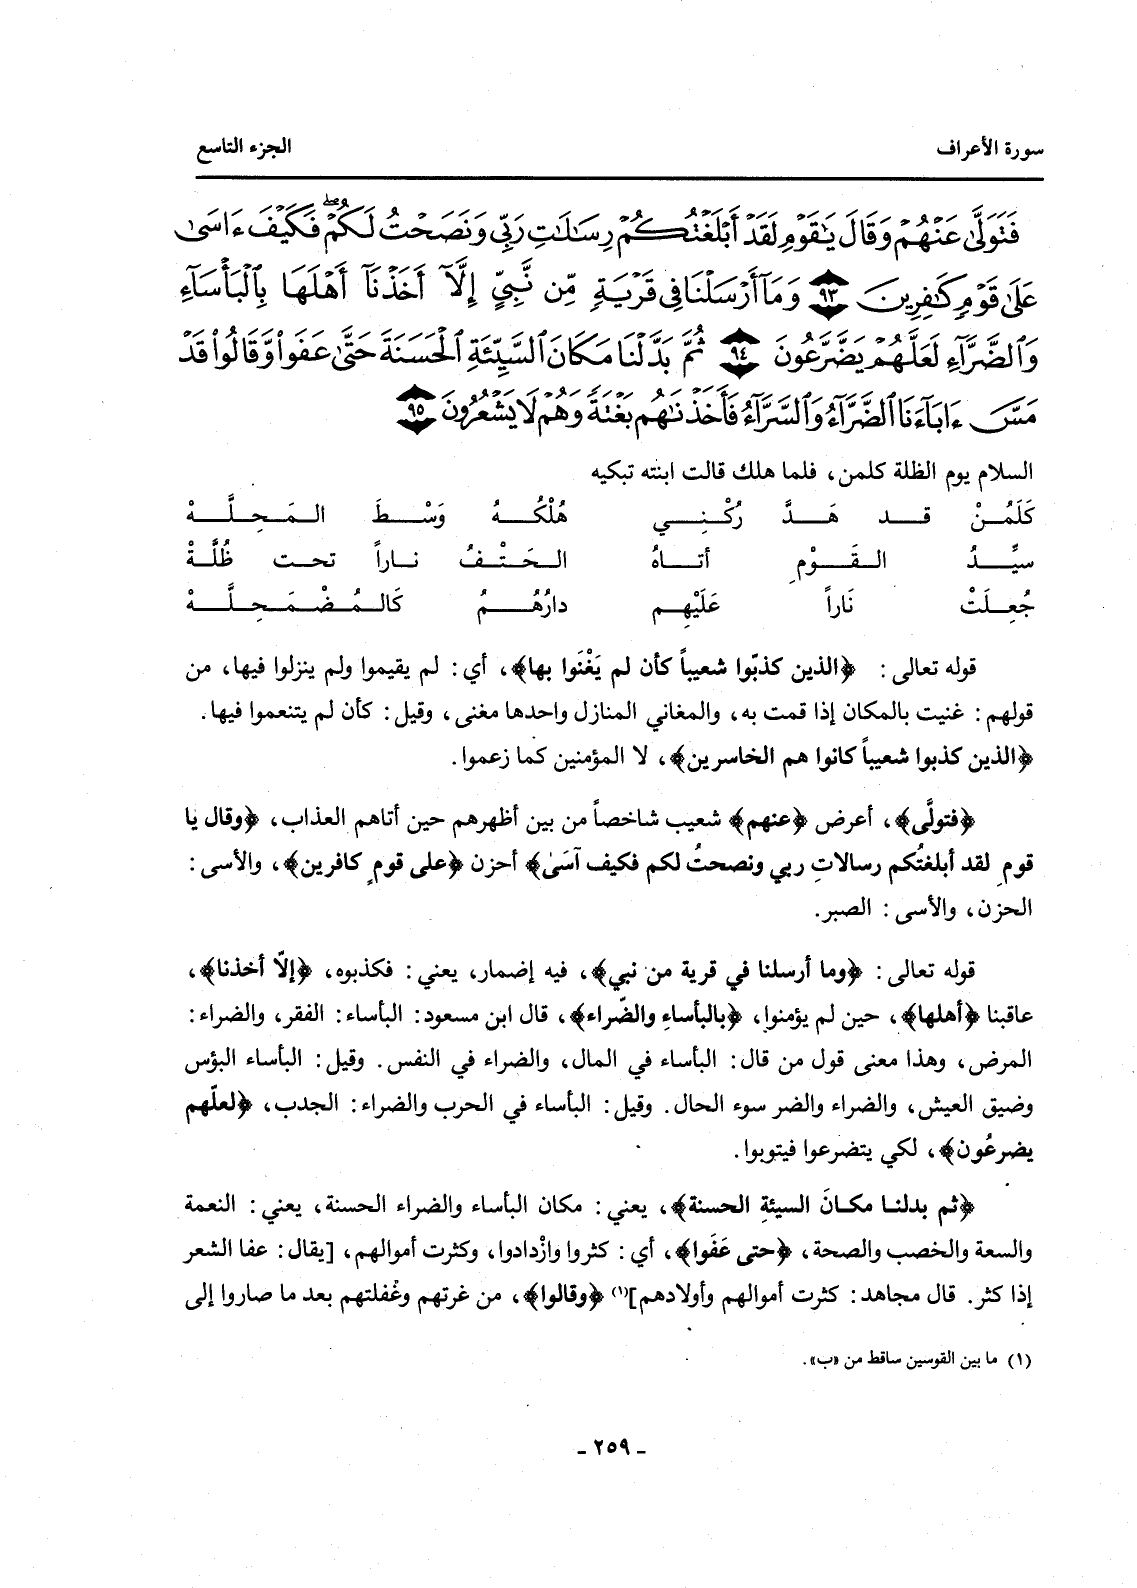 سورة الأعراف
الجزء التاسع
فَتَوَلَّىٰ عَنْهُمْ وَقَالَ يَٰقَوْمِ لَقَدْ أَبْلَغْتُكُمْ رِسَٰلَٰتِ رَبِّي وَنَصَحْتُ لَكُمْۖ فَكَيْفَ ءَاسَىٰ
عَلَىٰ قَوْمٍ كَٰفِرِينَ ٩٣ وَمَآ أَرْسَلْنَا فِي قَرْيَةٍ مِّن نَّبِيٍّ إِلَّآ أَخَذْنَآ أَهْلَهَا بِٱلْبَأْسَآءِ
وَٱلضَّرَّآءِ لَعَلَّهُمْ يَضَّرَّعُونَ ٩٤ ثُمَّ بَدَّلْنَا مَكَانَ ٱلسَّيِّئَةِ ٱلْحَسَنَةَ حَتَّىٰ عَفَواْ وَّقَالُواْ قَدْ
مَسَّ ءَابَآءَنَا ٱلضَّرَّآءُ وَٱلسَّرَّآءُ فَأَخَذْنَٰهُم بَغْتَةً وَهُمْ لَا يَشْعُرُونَ ٩٥
السلام يوم الظلة كلمن، فلما هلك قالت ابنته تبكيه
كَلَمُنْ قد هَدَّ رُكْنِي هُلْكُهُ وَسْطَ المَحِلَّهْ
سيِّدُ القَوْمِ أتاهُ الحَتْفُ ناراً تحت ظُلَّهْ
جُعِلَتْ نَاراً عَلَيْهِم دارُهُمُ كَالمُضْمَحِلَّهْ
قوله تعالى: ﴿الذين كذبّوا شعيباً كأن لم يَغْنَوا بها﴾، أي: لم يقيموا ولم ينزلوا فيها، من
قولهم: غنيت بالمكان إذا قمت به، والمغاني المنازل واحدها مغنى، وقيل: كأن لم يتنعموا فيها.
﴿الذين كذبوا شعيباً كانوا هم الخاسرين﴾، لا المؤمنين كما زعموا.
﴿فتولَّى﴾، أعرض ﴿عنهم﴾ شعيب شاخصاً من بين أظهرهم حين أتاهم العذاب، ﴿وقال يا
قومِ لقد أبلغتُكم رسالاتِ ربي ونصحتُ لكم فكيف آسَىٰ﴾ أحزن ﴿على قومٍ كافرين﴾، والأسى:
الحزن، والأسى: الصبر.
قوله تعالى: ﴿وما أرسلنا في قرية من نبي﴾، فيه إضمار، يعني: فكذبوه، ﴿إلاّ أخذنا﴾،
عاقبنا ﴿أهلها﴾، حين لم يؤمنوا، ﴿بالبأساءِ والضّراء﴾، قال ابن مسعود: البأساء: الفقر، والضراء:
المرض، وهذا معنى قول من قال: البأساء في المال، والضراء في النفس. وقيل: البأساء البؤس
وضيق العيش، والضراء والضر سوء الحال. وقيل: البأساء في الحرب والضراء: الجدب، ﴿لعلّهم
يضرعُون﴾، لكي يتضرعوا فيتوبوا.
﴿ثم بدلنا مكانَ السيئةِ الحسنة﴾، يعني: مكان البأساء والضراء الحسنة، يعني: النعمة
والسعة والخصب والصحة، ﴿حتى عَفَوا﴾، أي: كثروا وازْدادوا، وكثرت أموالهم، [يقال: عفا الشعر
إذا كثر. قال مجاهد: كثرت أموالهم وأولادهم](١) ﴿وقالوا﴾، من غرتهم وغُفلتهم بعد ما صاروا إلى
(١) ما بين القوسين ساقط من «ب».
ـ ٢٥٩ ـ